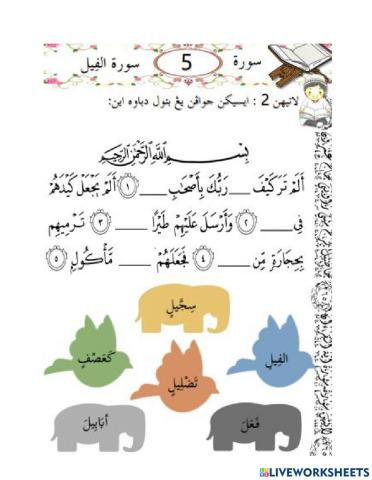 سورة 5 سورة الفيل
لاتيهن 2 : ايسيكن جواڤن يڠ بتول دباوه اين:
بِسْمِ اللَّهِ الرَّحْمَٰنِ الرَّحِيمِ
أَلَمْ تَرَ كَيْفَ ____ رَبُّكَ بِأَصْحَٰبِ ____ ١ أَلَمْ يَجْعَلْ كَيْدَهُمْ
فِي ____ ٢ وَأَرْسَلَ عَلَيْهِمْ طَيْرًا ____ ٣ تَرْمِيهِم
بِحِجَارَةٍ مِّن ____ ٤ فَجَعَلَهُمْ ____ مَّأْكُولٍ ٥
سِجِّيلٍ
كَعَصْفٍ
الفِيلِ
تَضْلِيلٍ
أبَابِيلَ
فَعَلَ
LIVEWORKSHEETS